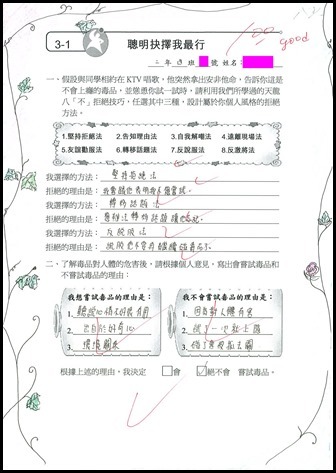 100
good
3-1
聰明抉擇我最行
二年 班 號 姓名:
一、假設與同學相約在KTV唱歌,他突然拿出安非他命,告訴你這是
不會上癮的毒品,並慫恿你試一試時,請利用我們所學過的天龍
八「不」拒絕技巧,任選其中三種,設計屬於你個人風格的拒絕
方法。
1.堅持拒絕法 2.告知理由法 3.自我解嘲法 4.遠離現場法
5.友誼勸服法 6.轉移話題法 7.反說服法 8.反激將法
我選擇的方法:堅持拒絕法
拒絕的理由是:
我選擇的方法:轉移話題法
拒絕的理由是:
我選擇的方法:反說服法
拒絕的理由是:
二、了解毒品對人體的危害後,請根據個人意見,寫出會嘗試毒品和
不嘗試毒品的理由:
我想嘗試毒品的理由是: 我不會嘗試毒品的理由是:
1. 1. 因為對人體有害
2. 出自於好奇心 2. 試了一次就上癮
3. 環境關係 3.
根據上述的理由,我決定 □會 ☑絕不會 嘗試毒品。